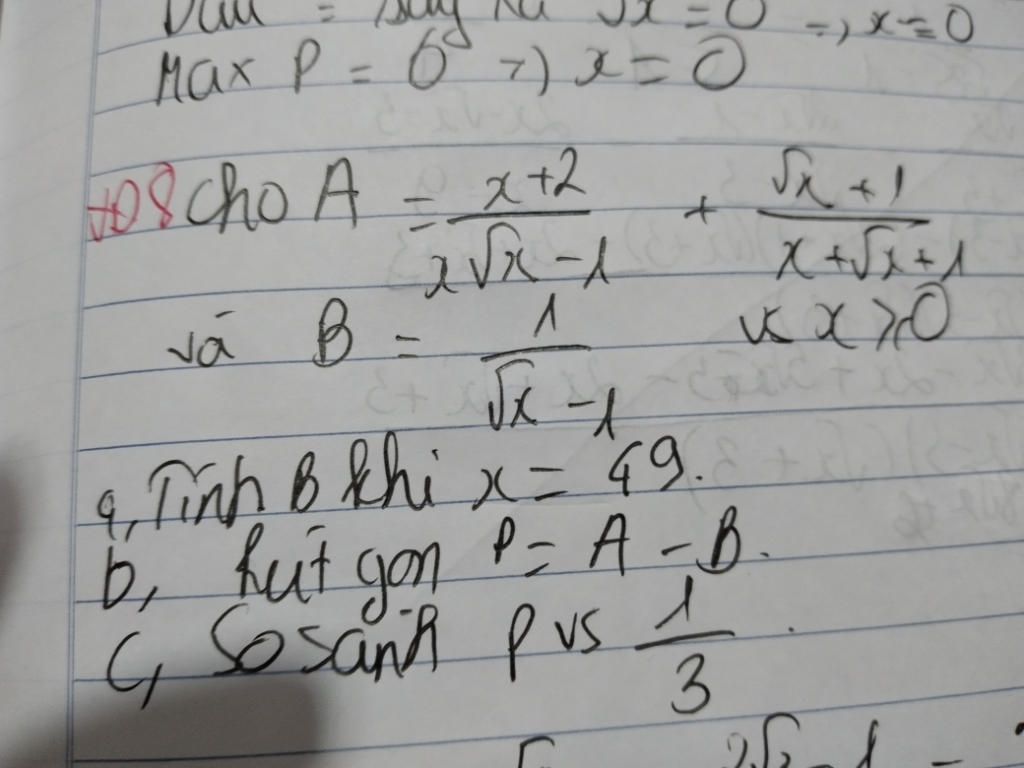 = √x = 0 => x = 0
Max P = 6 => x = 0
Cho A = \frac{x+2}{x√x - 1} + \frac{√x + 1}{x + √x + 1}
và B = \frac{1}{√x - 1} vs x ≥ 0
a, Tính B khi x = 49.
b, Rút gọn P = A - B.
c, So sánh P vs \frac{1}{3}.